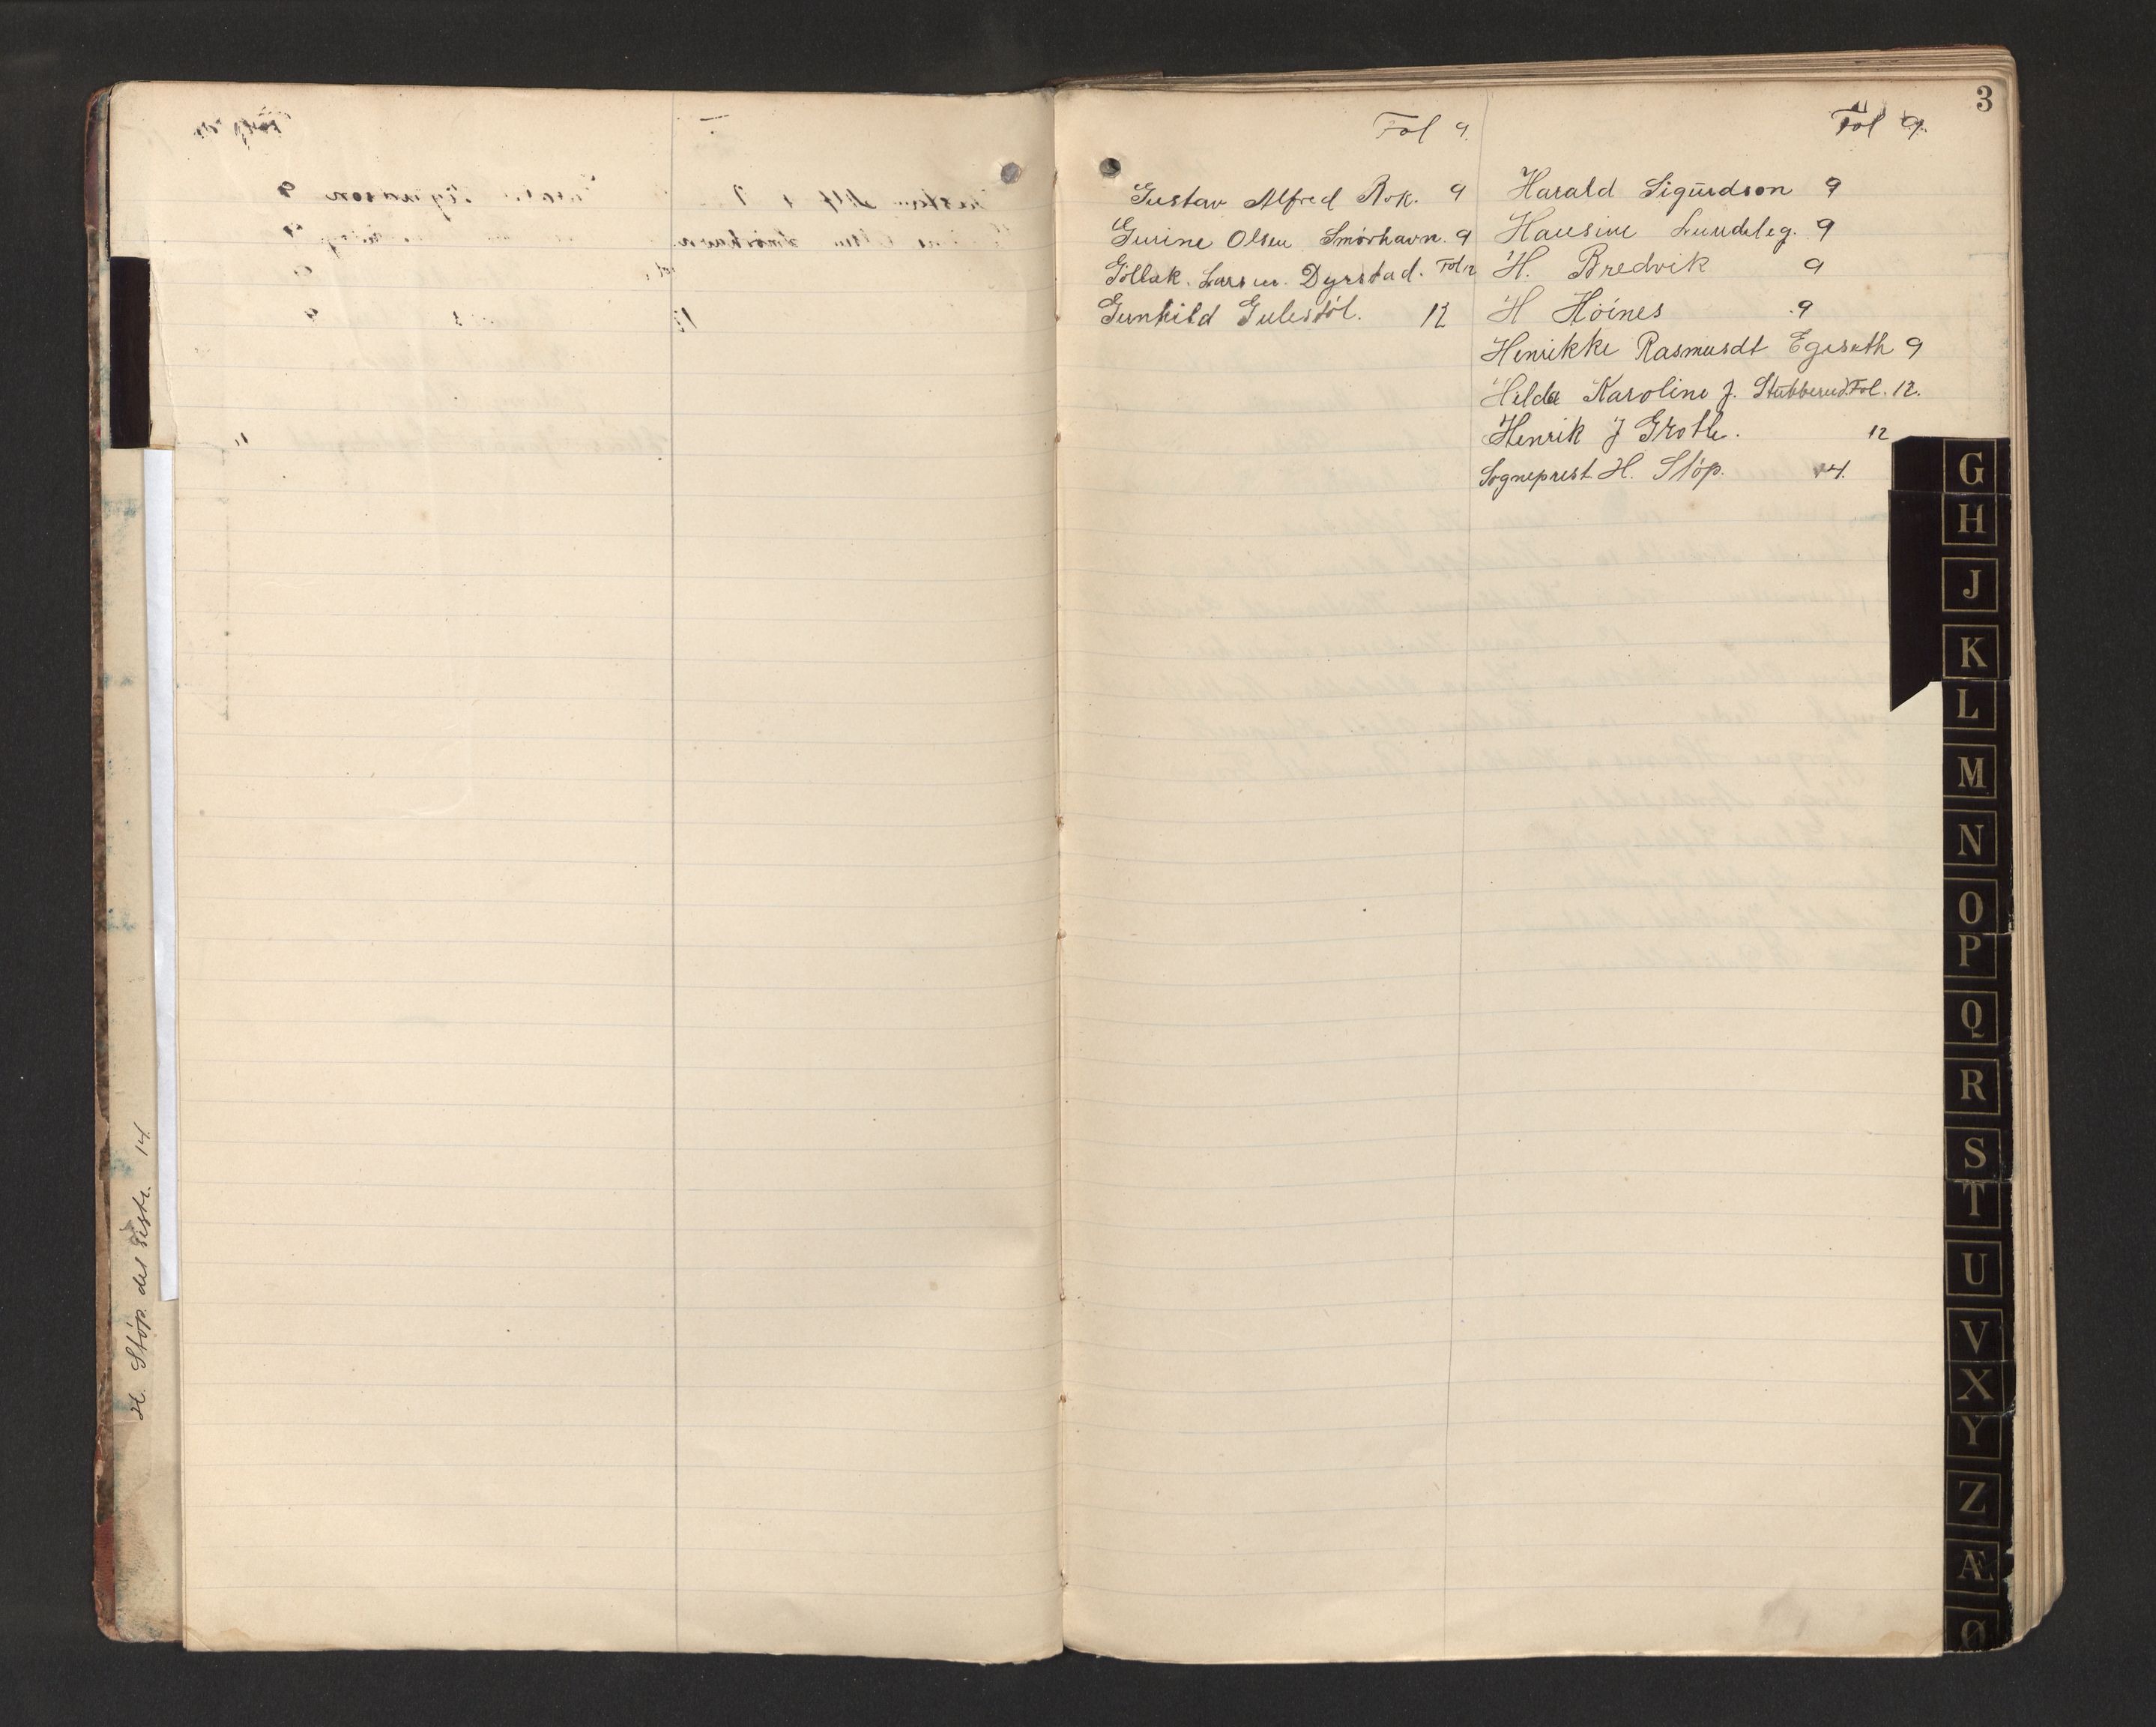 3
Fol 9.
Gustav Alfred Rok. 9
Gurine Olsen Smörhavn. 9
Gollak. Larsen. Dyrstad. Fol 12
Gunhild Gulestöl. 12
Fol 9.
Harald Sigurdson 9
Hansine Lundeleg. 9
H. Bredvik 9
H Höines 9
Henrikke Rasmusdt Egeseth 9
Helda Karoline J. Stubberud. Fol. 12.
Henrik J Groth. 12
Sogneprest. H. Stöp. 14.
H. Stöp. det sidste. 14
G
H
J
K
L
M
N
O
P
Q
R
S
T
U
V
X
Y
Z
Æ
Ø